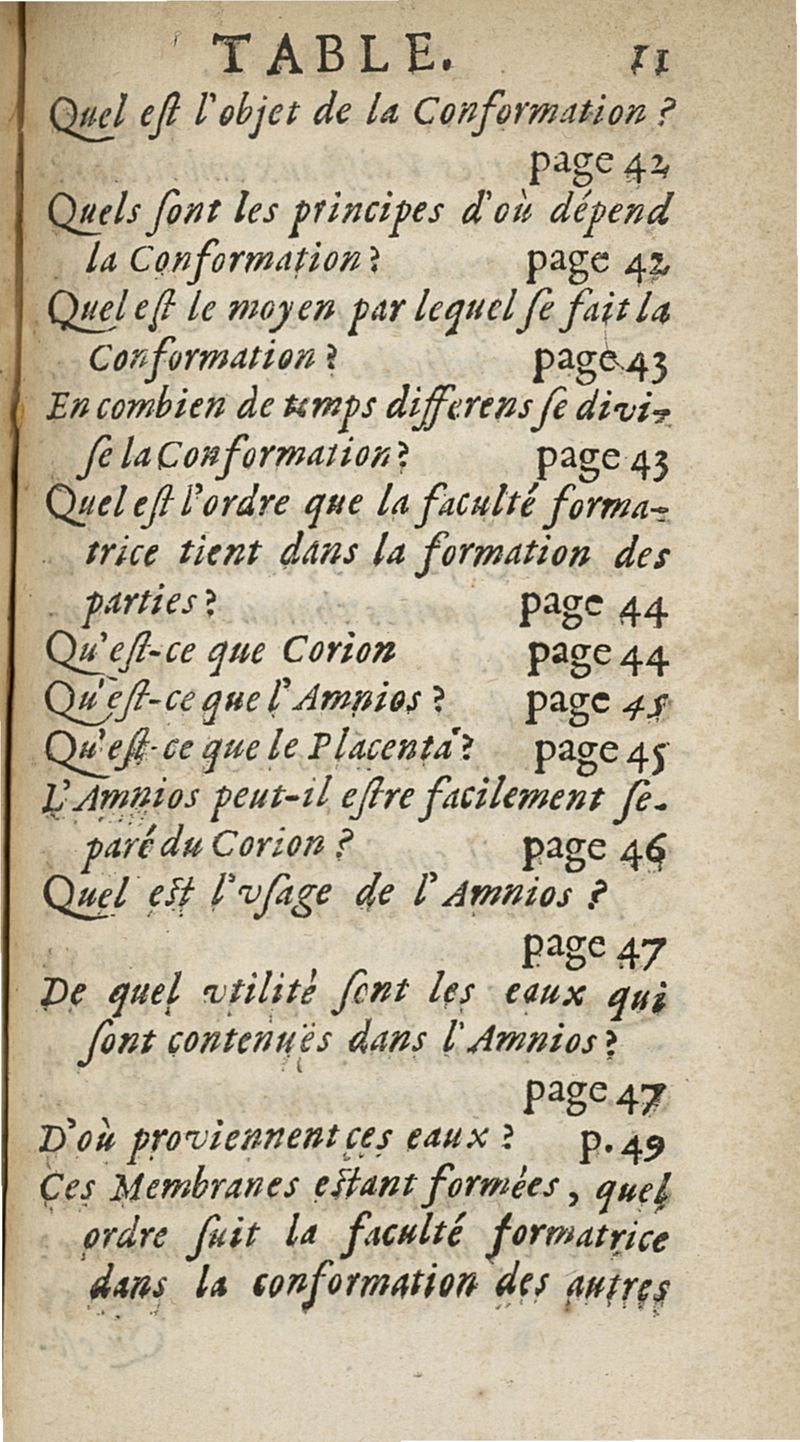 TABLE. 11
Quel eſt l'objet de la Conformation ?
page 42
Quels ſont les principes d'où dépend
la Conformation ? page 42
Quel eſt le moyen par lequel ſe fait la
Conformation ? page 43
En combien de temps differens ſe divi-
ſe la Conformation ? page 43
Quel eſt l'ordre que la faculté forma-
trice tient dans la formation des
parties ? page 44
Qu'eſt-ce que Corion page 44
Qu'eſt-ce que l'Amnios ? page 45
Qu'eſt-ce que le Placenta ? page 45
L'Amnios peut-il eſtre facilement ſe-
paré du Corion ? page 46
Quel eſt l'vſage de l'Amnios ?
page 47
De quel vtilité ſont les eaux qui
ſont contenuës dans l'Amnios ?
page 47
D'où proviennent ces eaux ? p. 49
Ces Membranes eſtant formées, quel
ordre ſuit la faculté formatrice
dans la conformation des autres